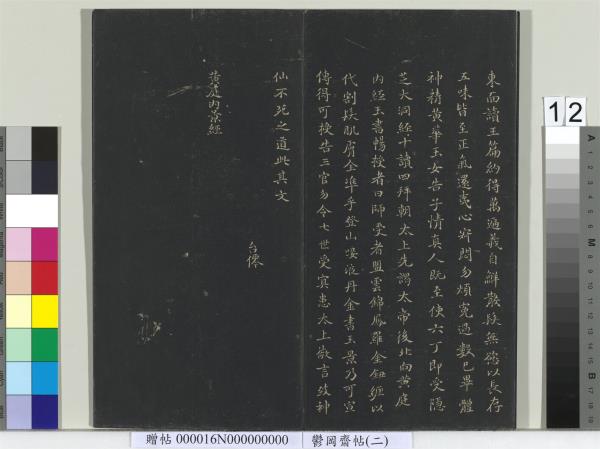 東而讀玉篇約得萬遍義自鮮散髮無慾以長存
五味皆至正氣還夷心寂悶勿煩寃過數已畢體
神精黃華玉女告子情真人既至使六丁即受隱
芝大洞經十讀四拜朝太上先謁太帝後北向黃庭
內經玉書暢授者曰師受者盟雲錦鳳羅金鈕纏以
代割髮肌膚全㩗手登山歃液丹金書玉景乃可宣
傳得可授告三官勿令七世受冥患太上微言致神
仙不死之道此其文
台僊
黃庭內景經
12
A
1
2
3
4
5
6
M
8
9
10
11
12
13
14
15
B
17
18
19
贈帖 000016N000000000
鬱岡齋帖(二)